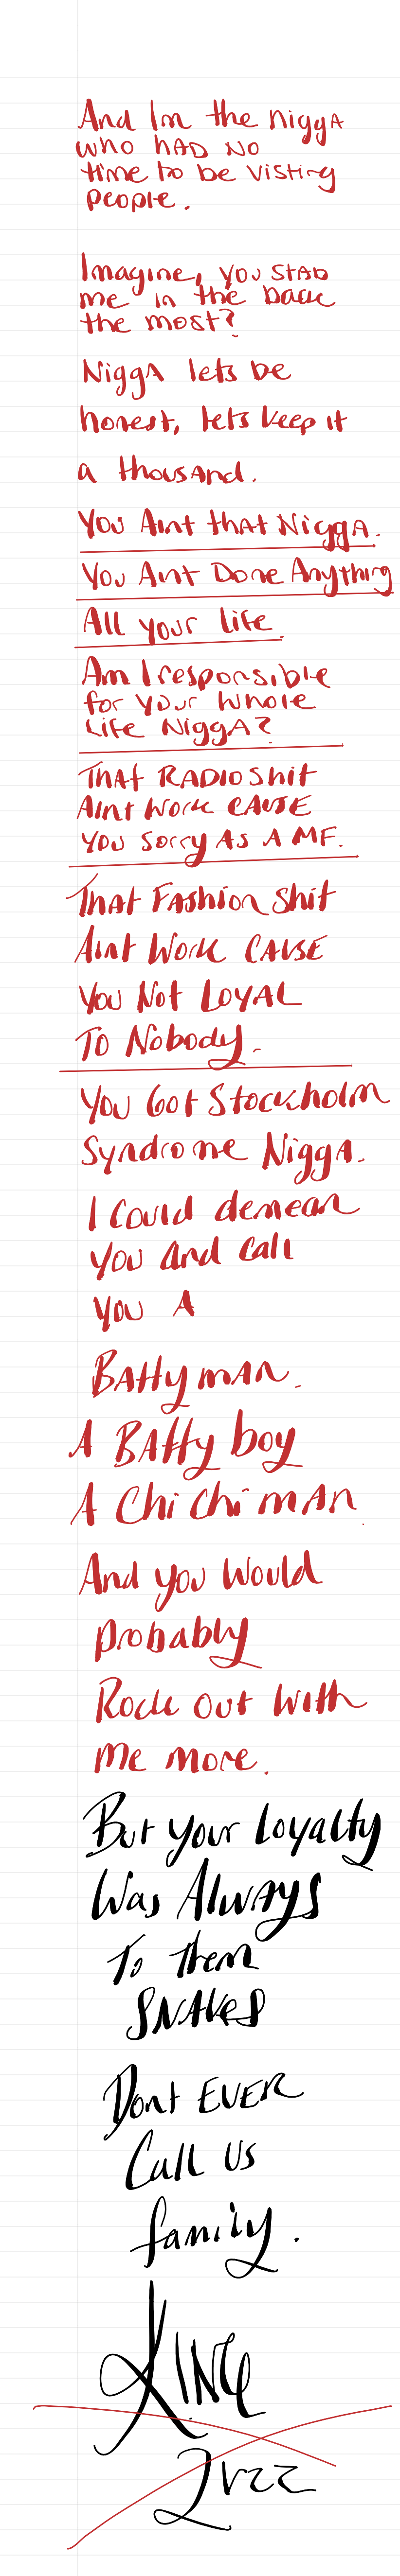 And Im the niggA
who hAD NO
time to be Visting
people.
Imagine, you stAB
me in the back
the most?
NiggA lets be
honest, lets keep it
a thousAnd.
You Aint thAt NiggA.
You Aint Done Anything
All your life.
Am I responsible
for your whole
Life NiggA?
ThAt RADIO shit
AINt Work CAUSE
you sorry As A MF.
ThAt FAshion shit
Aint Work CAUSE
you Not LOYAL
To Nobody.
You Got Stockholm
Syndrome NiggA.
I Could demean
you and call
you A
BAttymAn.
A BAtty boy
A Chi Chi mAn
And you Would
probably
Rock out with
me more.
But your loyalty
Was AlwAys
To them
SNAKES
Dont EVER
Call us
family.
KING